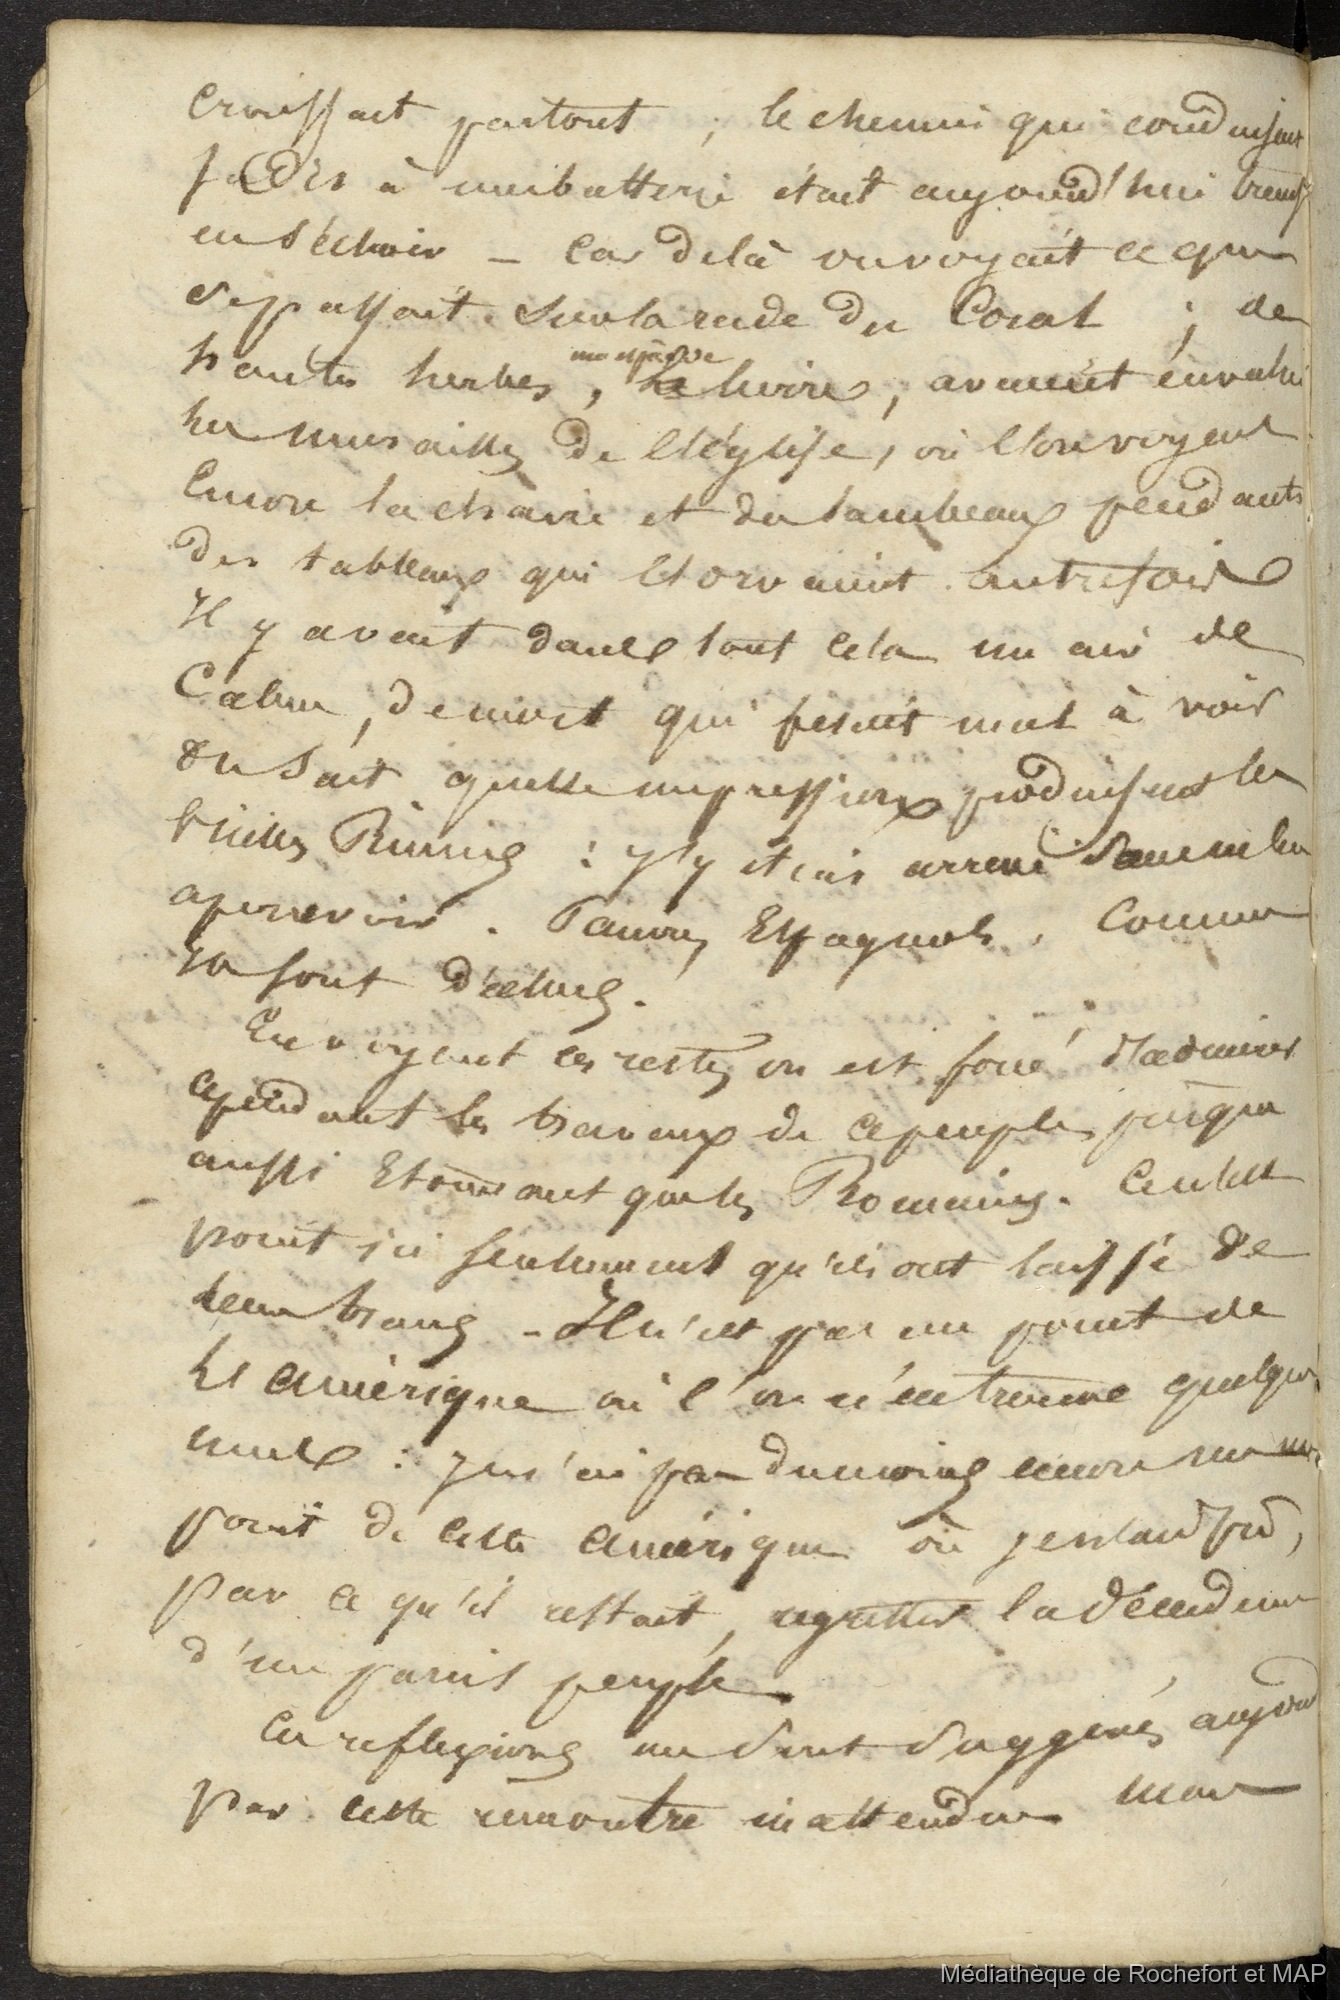 croissait partout ; le chemin qui conduisait
jadis à une batterie était aujourd'hui
en s'échoir — Car de là on voyait ce que
se passait sur la rade du Corail ; de
hautes herbes, une espèce de lierre, avaient envahi
les murailles de l'église, où l'on voyait
Encore la chaire et des lambeaux pendants
des tableaux qui l'ornaient autrefois
Il y avait dans tout cela un air de
Calme, de mort qui fesait mal à voir
On sait quelle impression produisent les
vieilles Ruines : J'y étais arrivé sans les
apercevoir. Pauvres Espagnols, Comme
Ils sont déchus.
En voyant ces restes on est forcé d'admirer
cependant les travaux de ce peuple, presque
aussi Etonnant que les Romains. Ce n'est
point ici seulement qu'ils ont laissé de
leurs traces — Il n'est pas un point de
L'amérique où l'on n'en trouve quelqu
unes : Je n'ai pas du moins encore vu un
point de cette amérique où j'entendu,
par ce qu'il restait, regretter la décadence
d'un pareil peuple
Ces reflexions me sont suggérées aujourd
par cette rencontre inattendue mais
Médiathèque de Rochefort et MAP